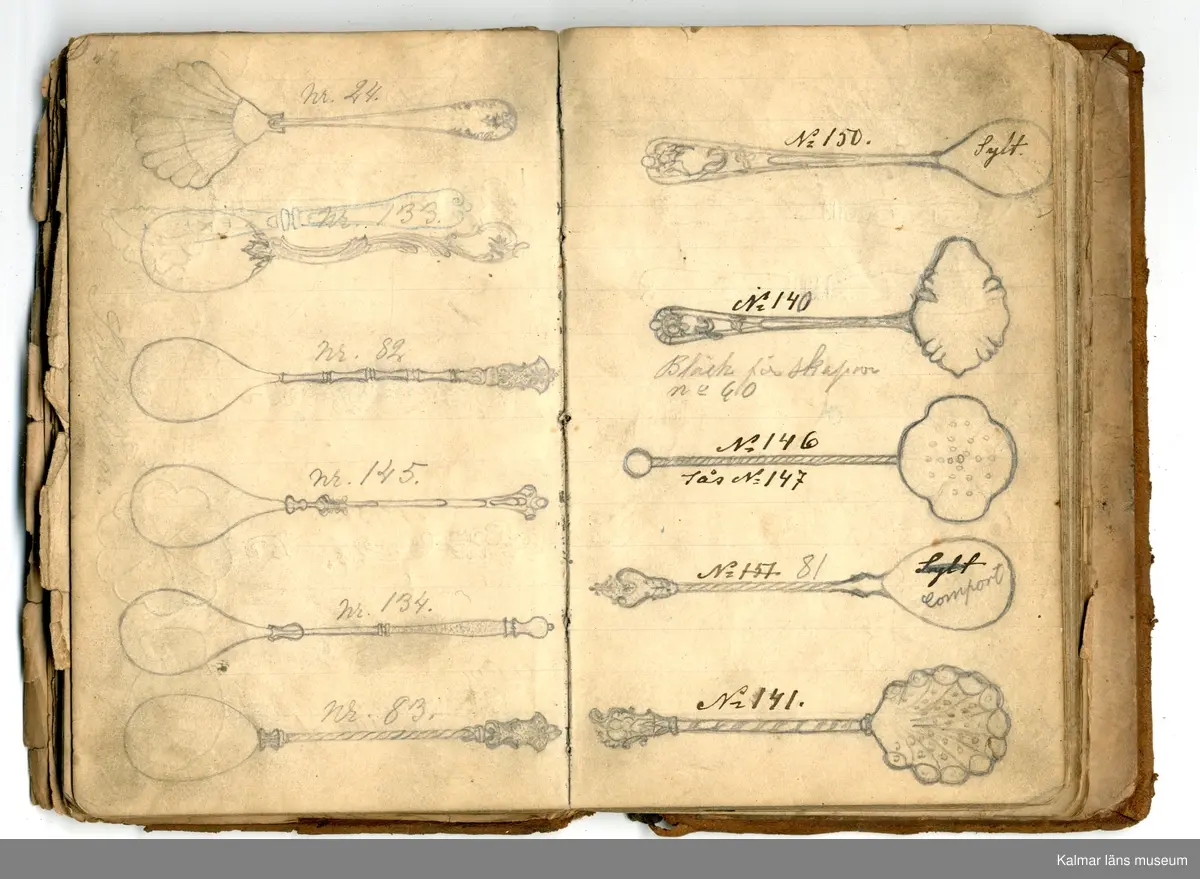 nr. 24.
nr. 133.
nr. 82
nr. 145.
nr. 134.
nr. 83.
No 150.
Sylt.
No 140
Bläck för skapor
no 60
No 146
Sås No 147
No 151 81
Sylt
Comport
No 141.
Kalmar läns museum